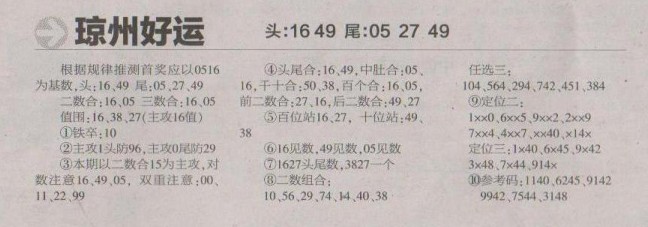 琼州好运 头:16 49 尾:05 27 49
根据规律推测首奖应以0516
为基数,头:16、49 尾:05、27、49
二数合:16、05 三数合:16、05
值围:16、38、27(主攻16值)
①铁卒:10
②主攻1头防96,主攻0尾防29
③本期以二数合15为主攻,对
数注意16、49、05, 双重注意:00、
11、22、99
④头尾合:16、49,中肚合:05、
16,千十合:50、38,百个合:16、05,
前二数合:27、16,后二数合:49、27
⑤百位站16、27, 十位站:49、
38
⑥16见数,49见数,05见数
⑦1627头尾数,3827一个
⑧二数组合:
10、56、29、74、14、40、38
任选三:
104、564、294、742、451、384
⑨定位二:
1××0、6××5、9××2、2××9
7××4、4××7、××40、×14×
定位三:1×40、6×45、9×42
3×48、7×44、914×
⑩参考码:1140、6245、9142
9942、7544、3148